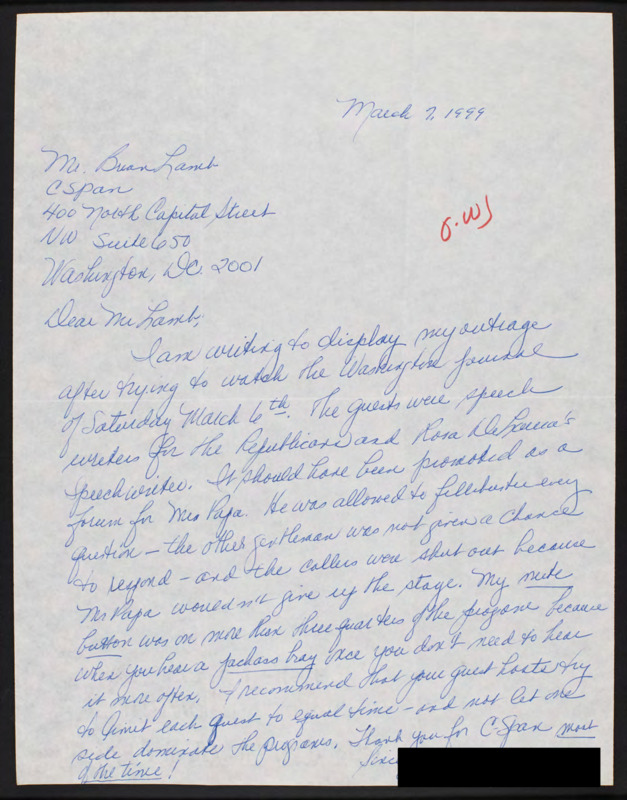 March 7, 1999
Mr. Brian Lamb
CSpan
400 North Capital Street
NW Suite 650
Washington, DC. 2001
o.WJ
Dear Mr Lamb,
I am writing to display my outrage
after trying to watch the Washington Journal
of Saturday March 6th. The guests were speech
writers for the Republicans and Rosa DeLaura's
speechwriter. It should have been promoted as a
forum for Mr Papa. He was allowed to fillibuster every
question – the other gentleman was not given a chance
to respond – and the callers were shut out because
Mr Papa wouldn't give up the stage. My mute
button was on more than three quarters of the program because
when you hear a jackass bray once you don't need to hear
it more often. I recommend that your guest hosts try
to limit each guest to equal time – and not let one
side dominate the programs. Thank you for C-Span most
of the time!